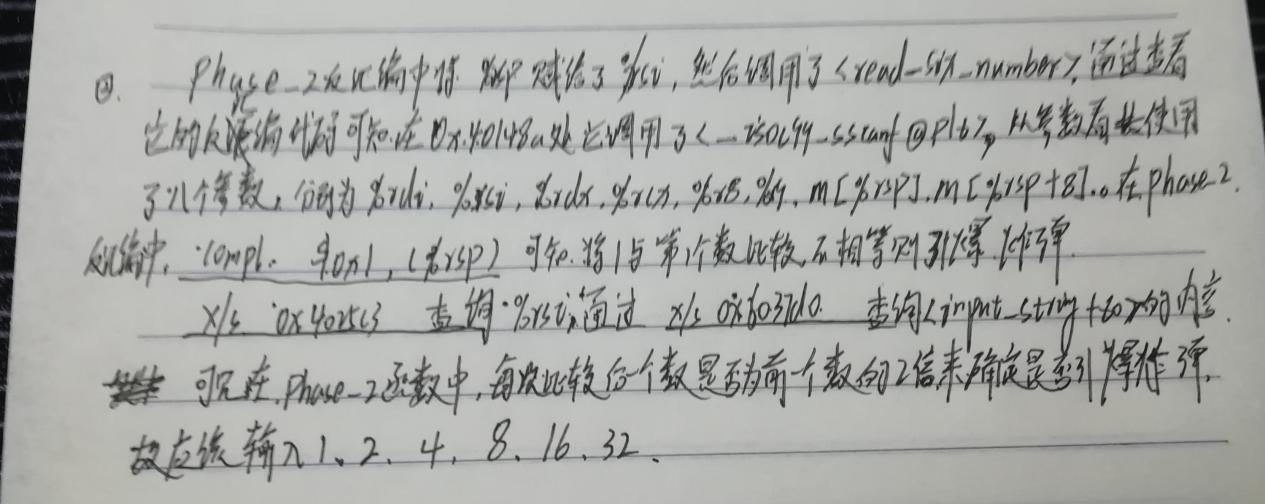 ②. phase_2反汇编中将 %rsp 赋给了 %rsi, 然后调用了<read_six_number>, 通过查看
它的反汇编代码可知, 在0x40148a处它调用了<__isoc99_sscanf@plt>, 从参数看共使用
了八个参数, 分别为 %rdi, %rsi, %rdx, %rcx, %r8, %r9, m[%rsp], m[%rsp+8]。在phase_2
反汇编中, cmpl. $0x1, (%rsp) 可知. 将1与第1个数比较, 不相等则引爆炸弹.
x/s 0x4025c3 查询 %rsi, 通过 x/s 0x6037d0 查询<input_string+80>的内容.
可见在phase_2函数中, 每次比较后一个数是否为前一个数的2倍来确定是否引爆炸弹.
故应该输入1、2、4、8、16、32.